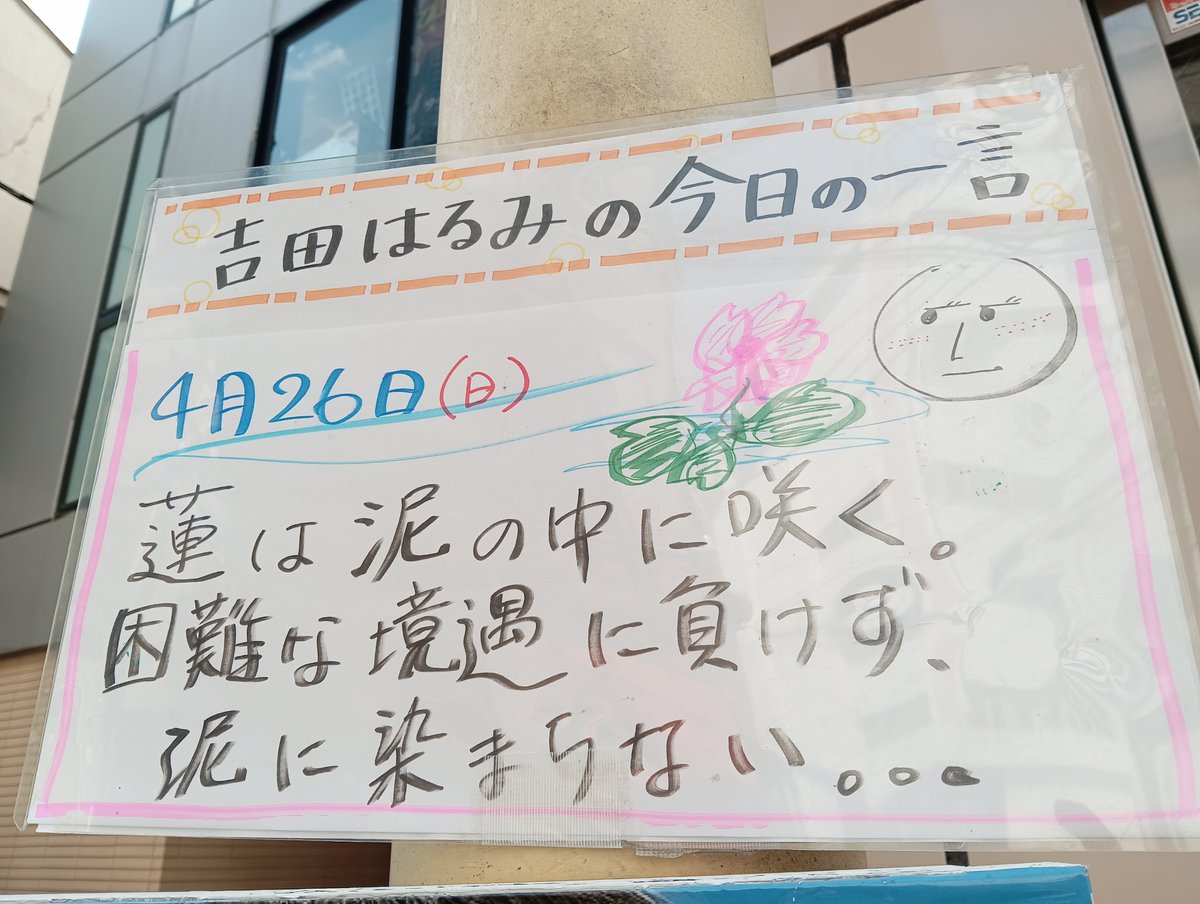 吉田はるみの今日の一言
4月26日(日)
蓮は泥の中に咲く。
困難な境遇に負けず、
泥に染まらない。。。
SE